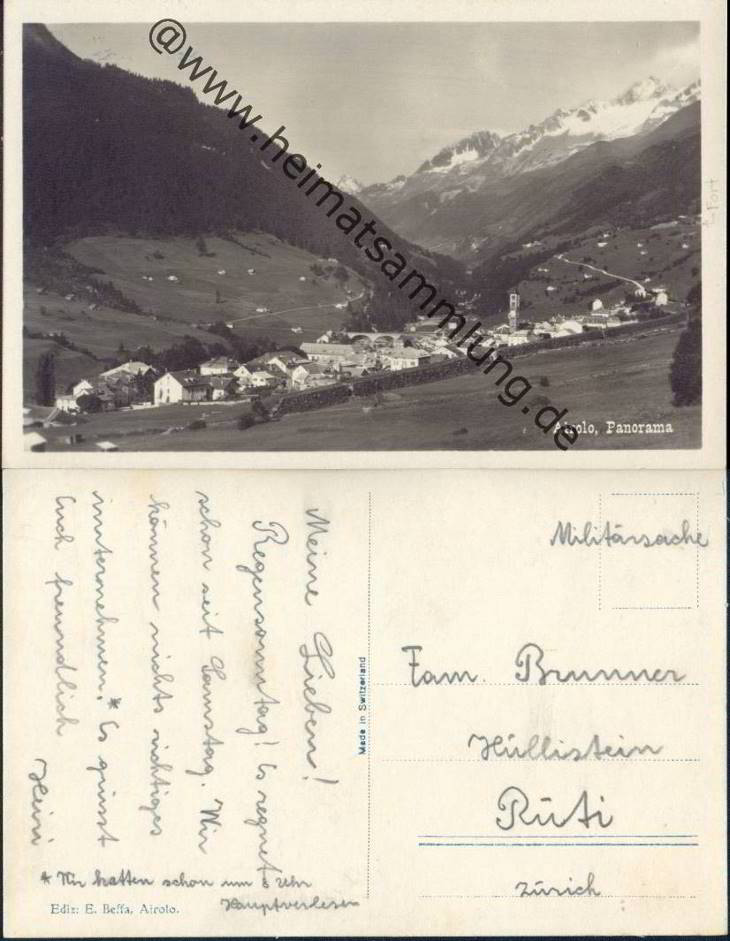 @www.heimatsammlung.de
Airolo, Panorama
Fort
Meine Lieben!
Regensonntag! Es regnet
schon seit Samstag. Wir
können nichts richtiges
unternehmen.* Es grüsst
Euch freundlich
Heiri
* Wir hatten schon um 8 Uhr
Hauptverlesen
Ediz: E. Beffa, Airolo.
Made in Switzerland
Militärsache
Fam. Brunner
Hüllistein
Rüti
Zürich